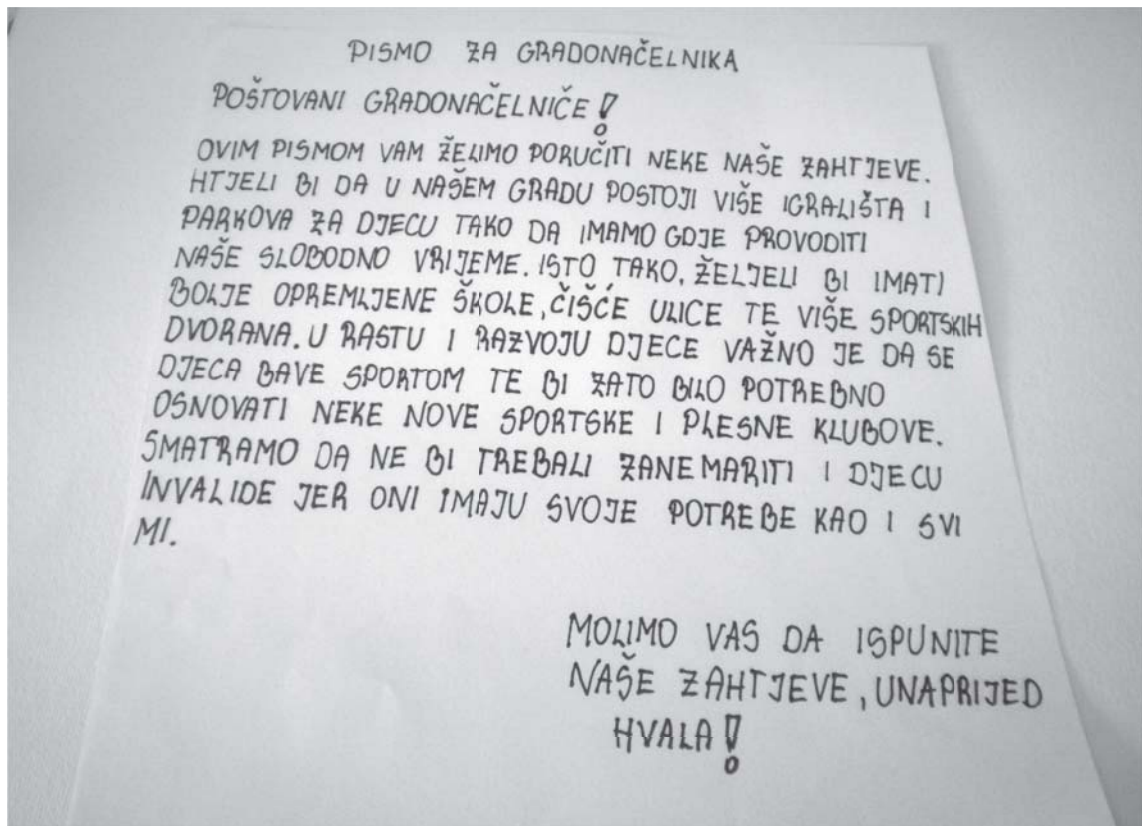 PISMO ZA GRADONAČELNIKA
POŠTOVANI GRADONAČELNIČE!
OVIM PISMOM VAM ŽELIMO PORUČITI NEKE NAŠE ZAHTJEVE.
HTJELI BI DA U NAŠEM GRADU POSTOJI VIŠE IGRALIŠTA I
PARKOVA ZA DJECU TAKO DA IMAMO GDJE PROVODITI
NAŠE SLOBODNO VRIJEME. ISTO TAKO, ŽELJELI BI IMATI
BOLJE OPREMLJENE ŠKOLE, ČIŠĆE ULICE TE VIŠE SPORTSKIH
DVORANA. U RASTU I RAZVOJU DJECE VAŽNO JE DA SE
DJECA BAVE SPORTOM TE BI ZATO BILO POTREBNO
OSNOVATI NEKE NOVE SPORTSKE I PLESNE KLUBOVE.
SMATRAMO DA NE BI TREBALI ZANEMARITI I DJECU
INVALIDE JER ONI IMAJU SVOJE POTREBE KAO I SVI
MI.
MOLIMO VAS DA ISPUNITE
NAŠE ZAHTJEVE, UNAPRIJED
HVALA!